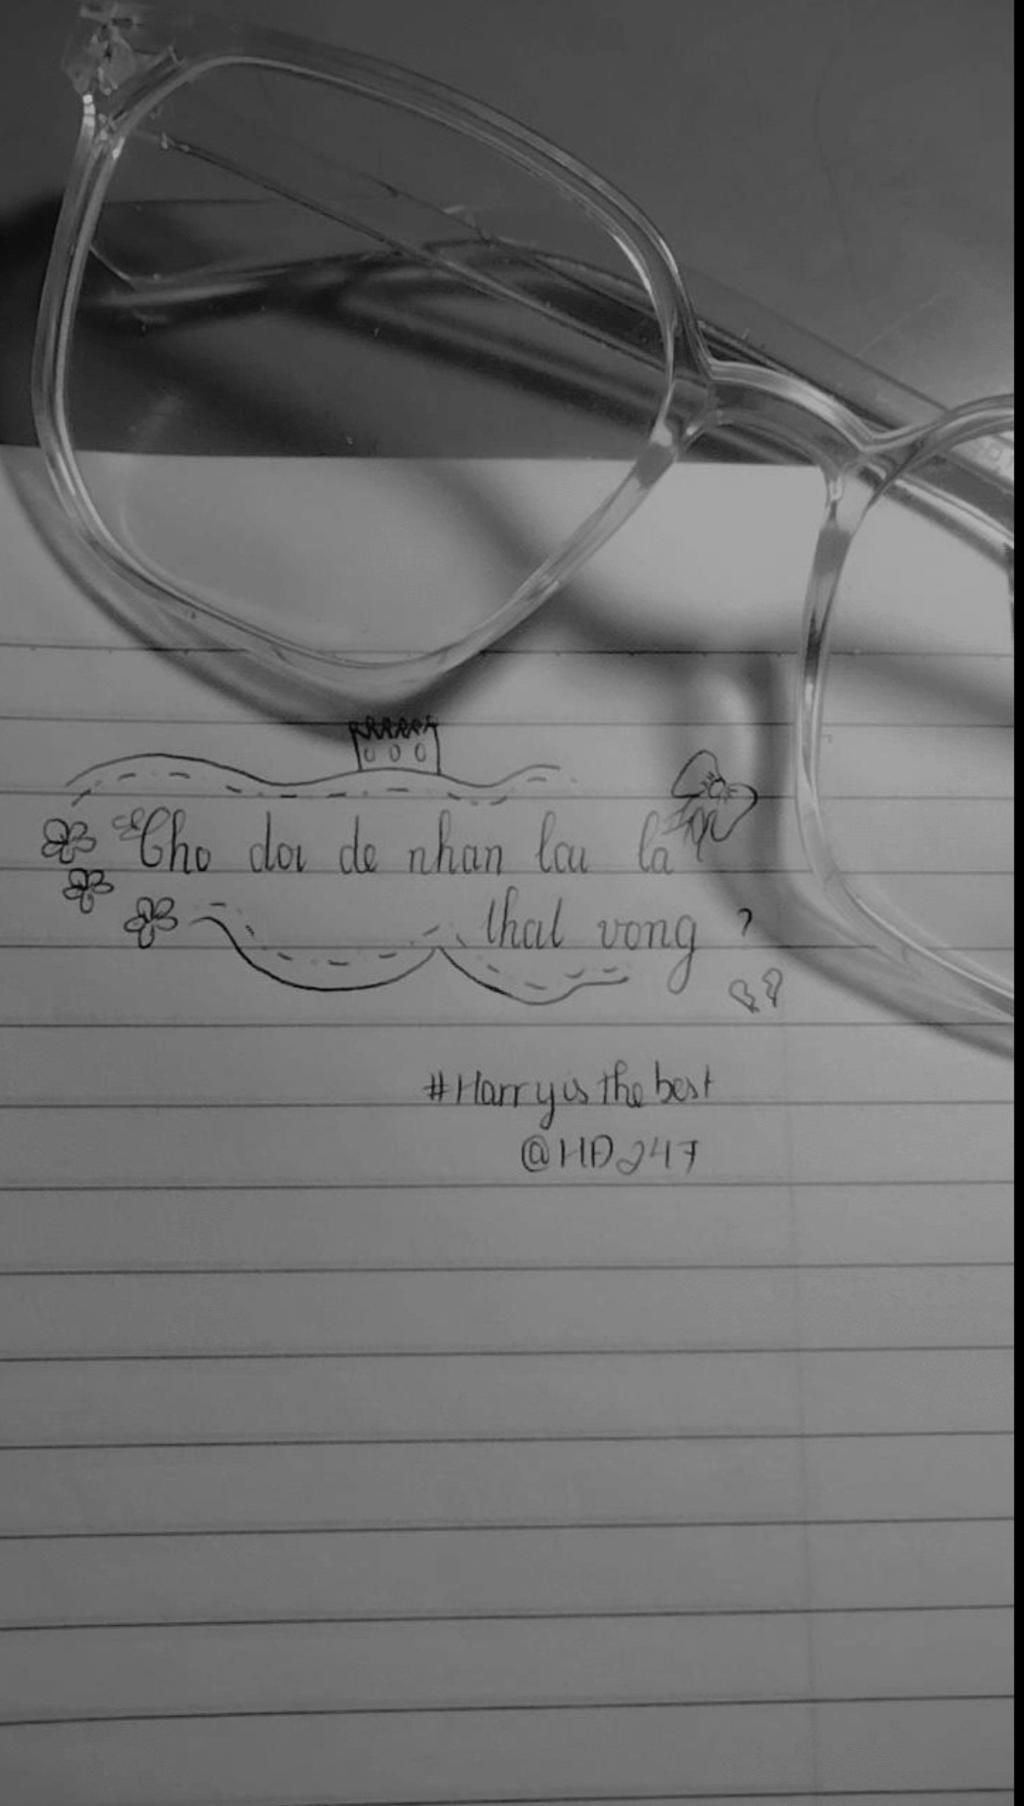 "Cho doi de nhan lai la
that vong ?
#Harry is the best
@HD247